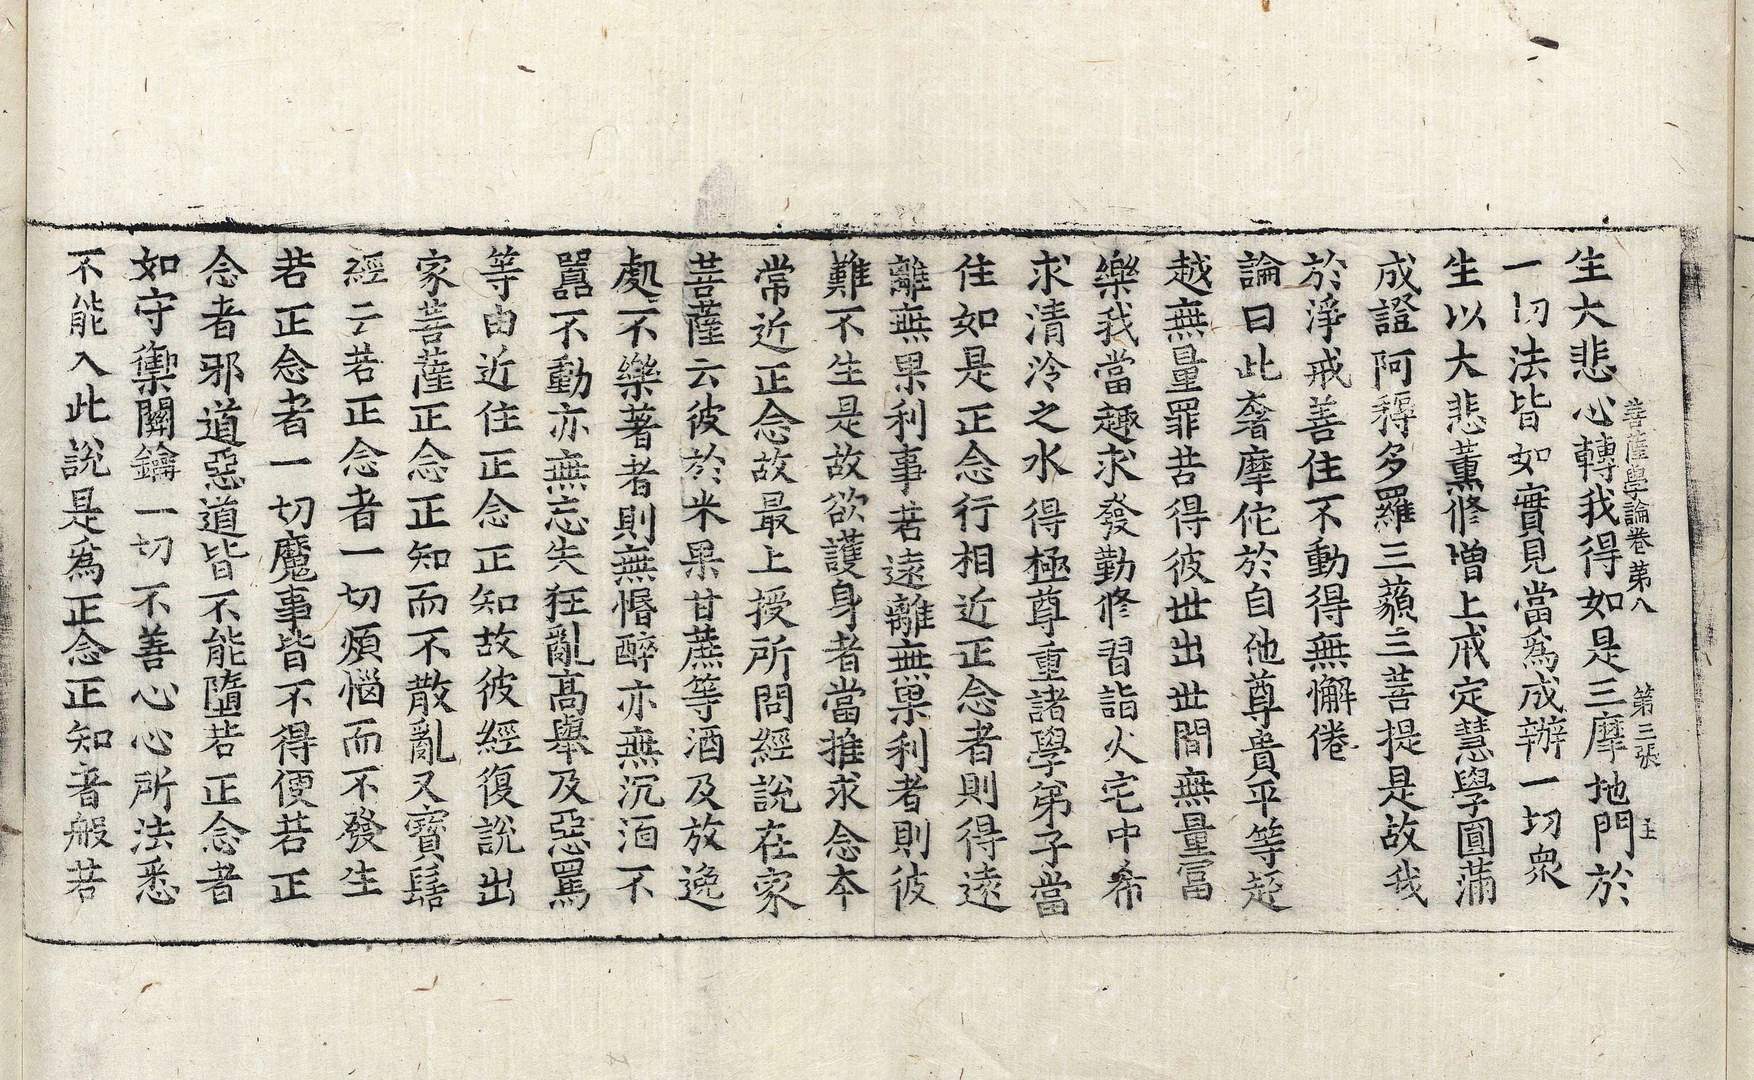 菩薩學論卷第八　第三張　主
生大悲心轉我得如是三摩地門於
一切法皆如實見當爲成辦一切衆
生以大悲薰修增上戒定慧學圓滿
成證阿耨多羅三藐三菩提是故我
於淨戒善住不動得無懈倦
論曰此奢摩佗於自他尊貴平等超
越無量罪苦得彼世出世間無量富
樂我當趣求發勤修習詣火宅中希
求清泠之水得極尊重諸學弟子當
住如是正念行相近正念者則得遠
離無果利事若遠離無果利者則彼
難不生是故欲護身者當推求念本
常近正念故最上授所問經說在家
菩薩云彼於米果甘蔗等酒及放逸
處不樂著者則無惛醉亦無沉湎不
囂不動亦無忘失狂亂高舉及惡罵
等由近住正念正知故彼經復說出
家菩薩正念正知而不散亂又寶髻
經云若正念者一切煩惱而不發生
若正念者一切魔事皆不得便若正
念者邪道惡道皆不能墮若正念者
如守禦關鑰一切不善心心所法悉
不能入此說是爲正念正知者般若